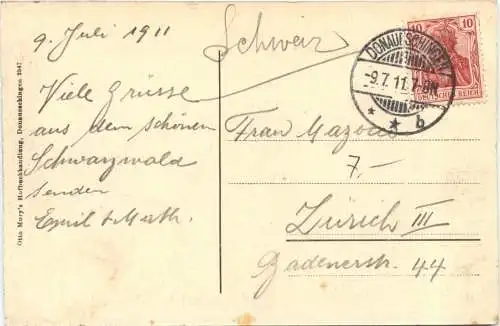 9. Juli 1911
Viele Grüsse
aus dem schönen
Schwarzwald
senden
Emil & Math.
Schweiz
Frau Mazous
7.—
Zürich III
Badenerstr. 44
DONAUESCHINGEN
-9.7.11.7-8N
* * b
10
DEUTSCHES REICH
Otto Mory's Hofbuchhandlung, Donaueschingen 2947